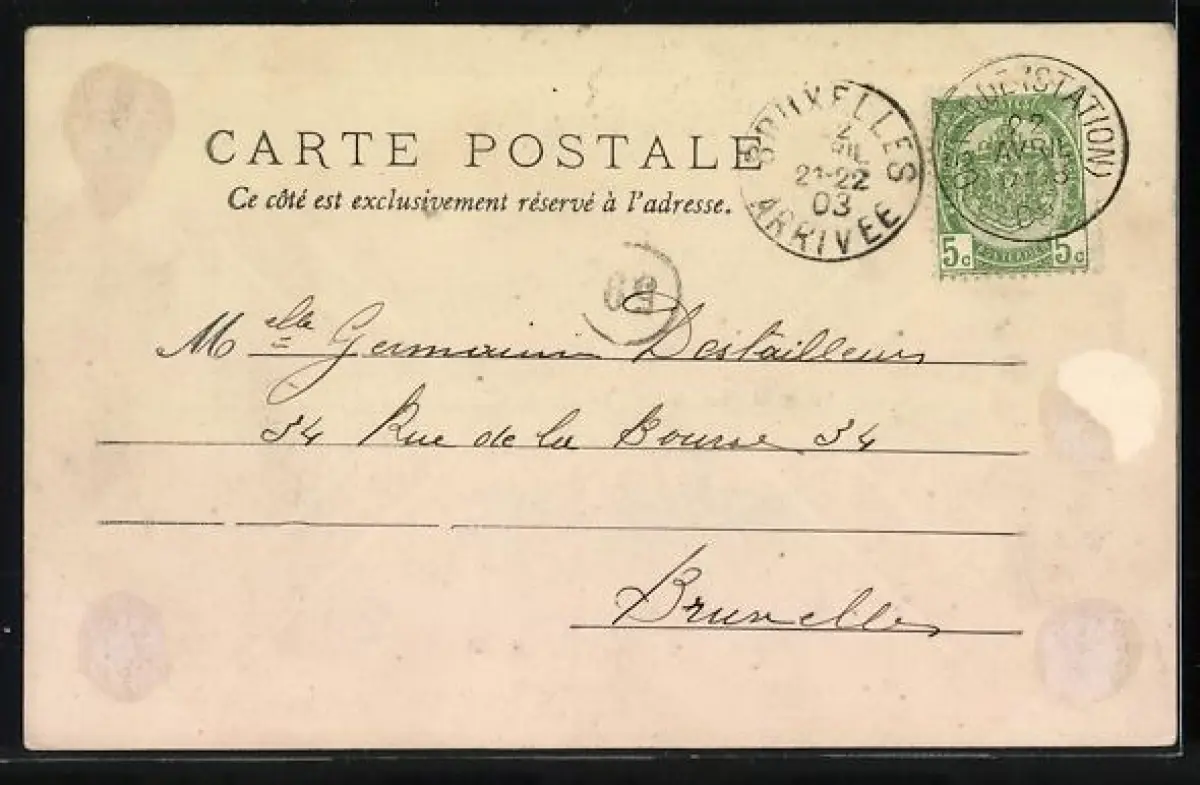 CARTE POSTALE
Ce côté est exclusivement réservé à l'adresse.
BRUXELLES
21-22
03
ARRIVÉE
(STATION)
22
AVRIL
03
5c 5c
69
Melle Germaine Destailleurs
34 Rue de la Bourse 34
Bruxelles